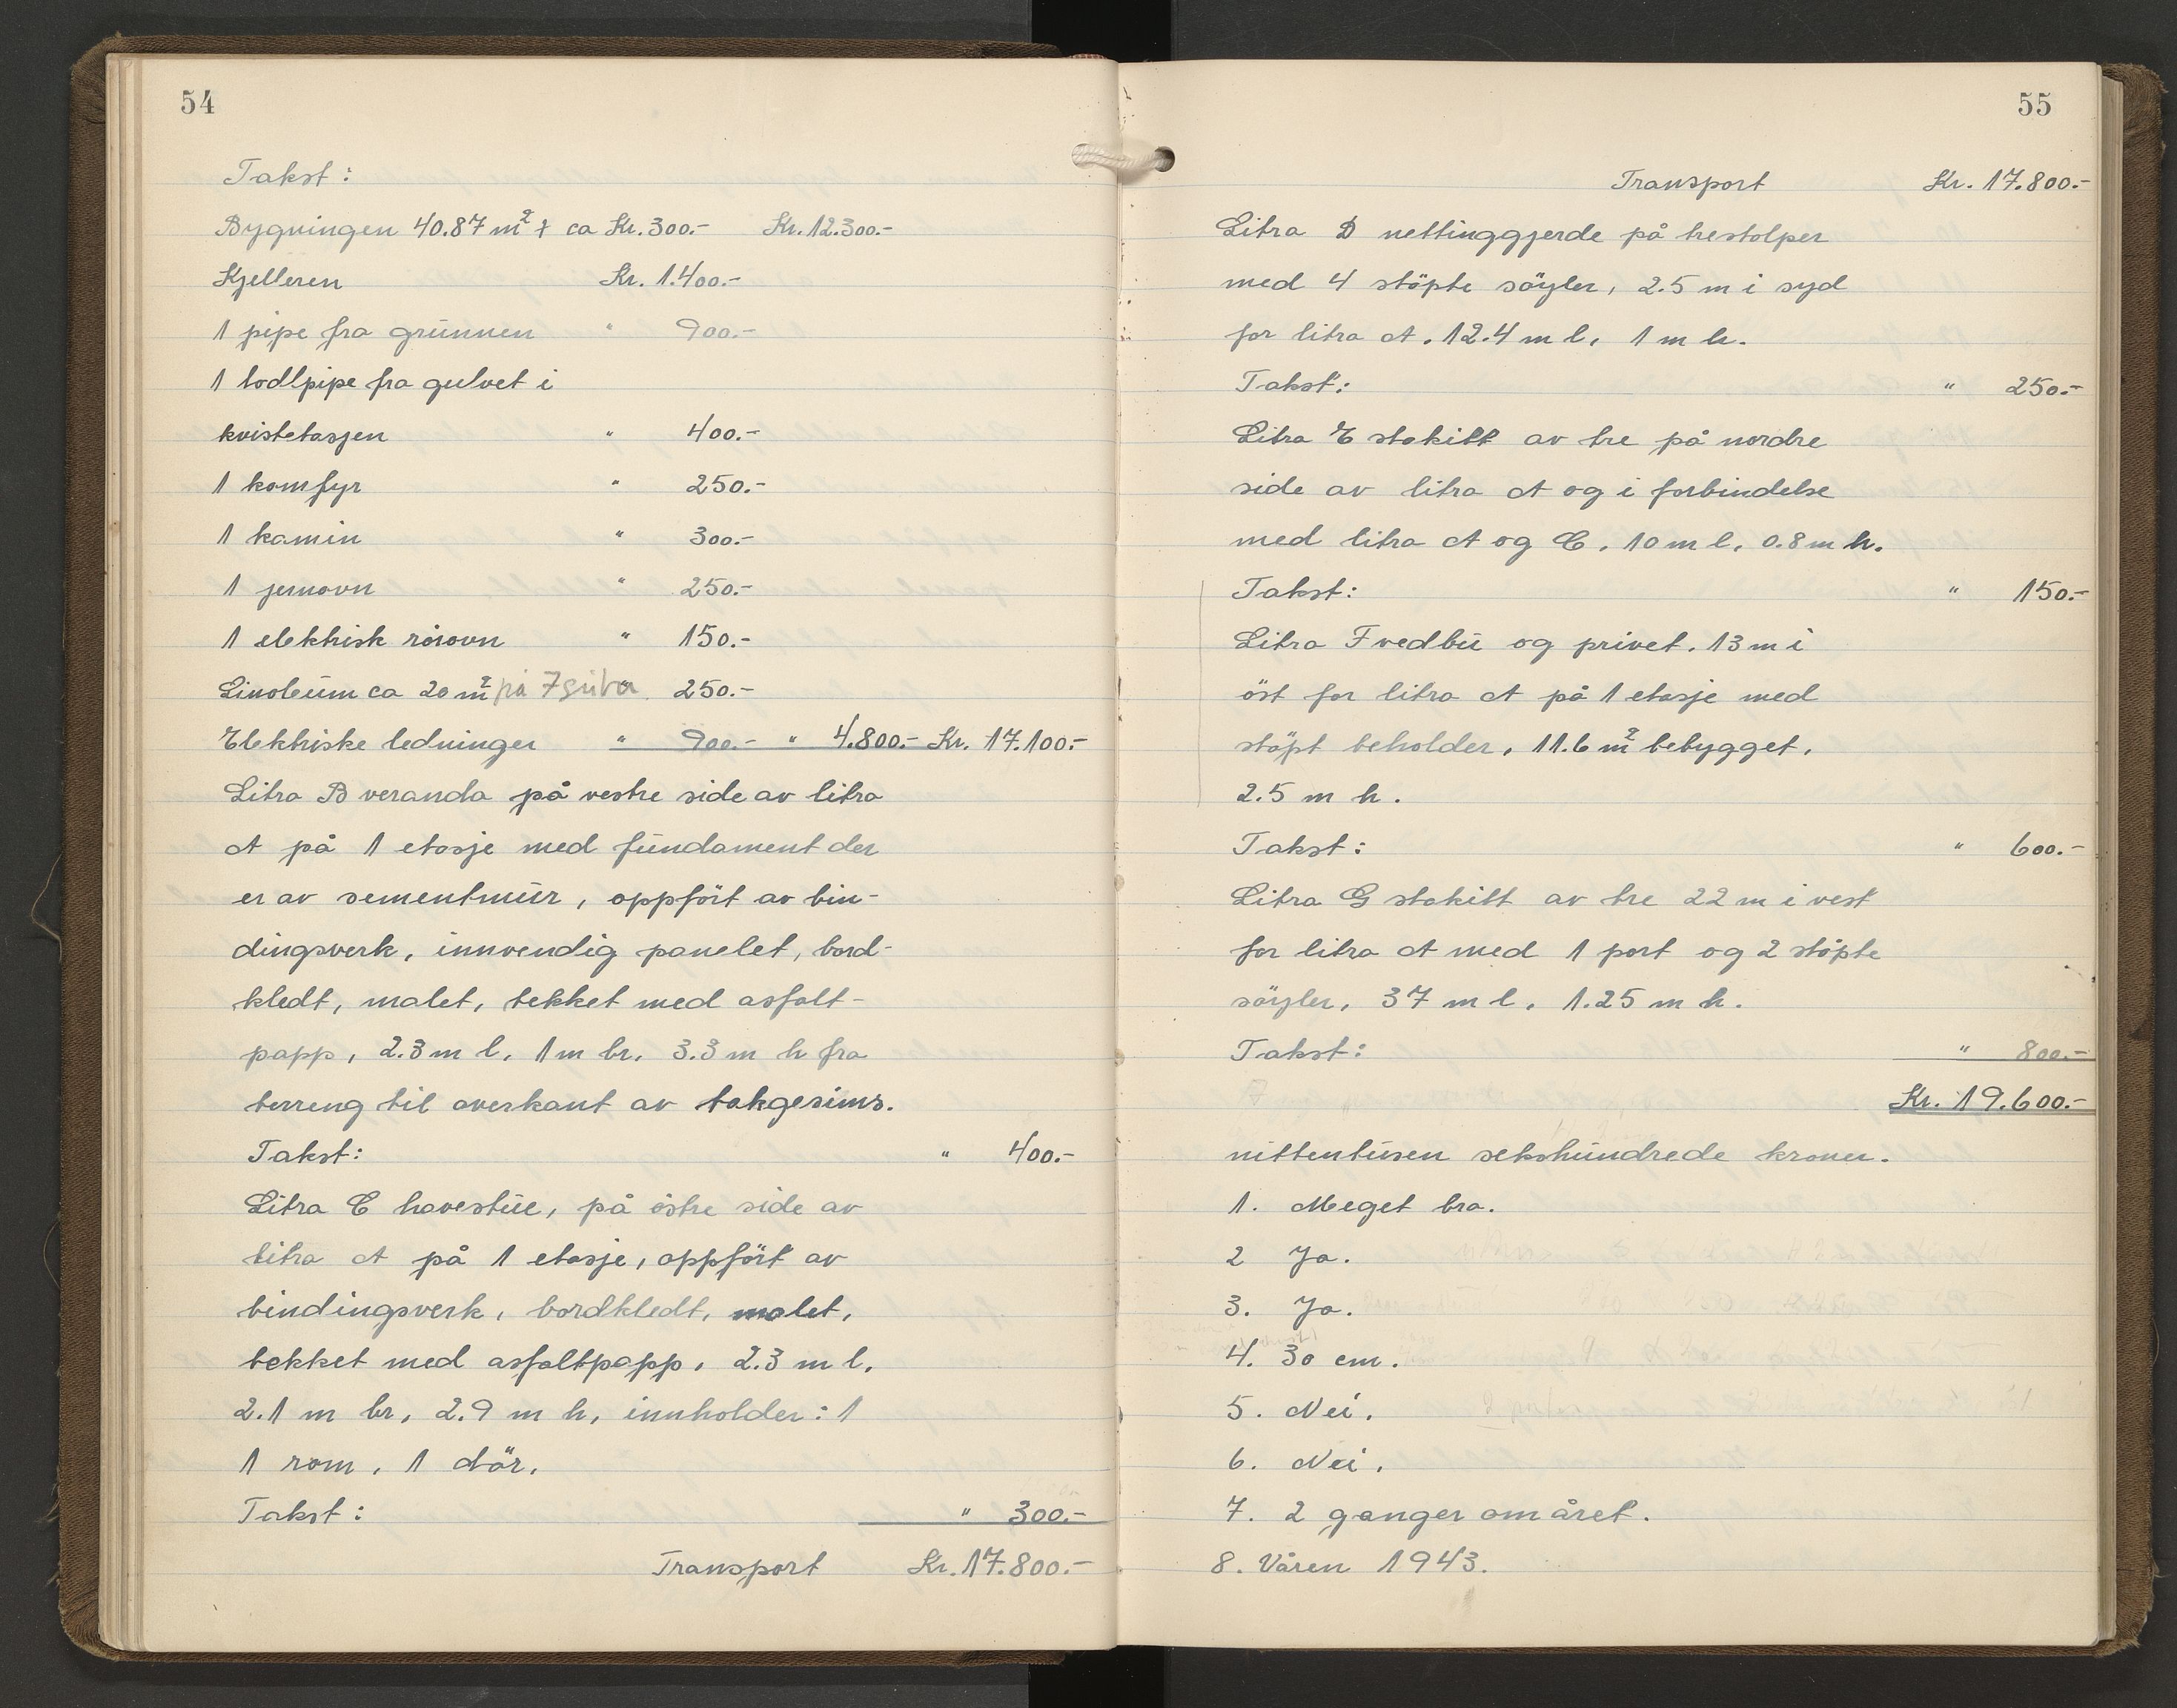 54
Takst:
Bygningen 40.87 m² à ca Kr. 300.- Kr. 12.300.-
Kjelleren Kr. 1.400.-
1 pipe fra grunnen " 900.-
1 lodlpipe fra gulvet i
kvistetasjen " 400.-
1 komfyr " 250.-
1 kamin " 300.-
1 jernovn " 250.-
1 elektrisk rörovn " 150.-
Linoleum ca 20 m² på 7 gulva " 250.-
Elektriske ledninger " 900.- " 4.800.- Kr. 17.100.-
Litra B veranda på vestre side av litra
A på 1 etasje med fundament der
er av sementmur, oppfört av bin-
dingsverk, innvendig panelet, bord-
kledt, malet, tekket med asfalt-
papp, 2.3 m l, 1 m br. 3.3 m h fra
terreng til overkant av takgesims.
Takst: " 400.-
Litra C havestue, på östre side av
litra A på 1 etasje, oppfört av
bindingsverk, bordkledt, malet,
tekket med asfaltpapp, 2.3 m l,
2.1 m br, 2.9 m h, innholder: 1
1 rom, 1 dör.
Takst: " 300.-
Transport Kr. 17.800.-
55
Transport Kr. 17.800.-
Litra D nettinggjerde på trestolper
med 4 stöpte söyler, 2.5 m i syd
for litra A. 12.4 m l, 1 m h.
Takst: " 250.-
Litra E stakitt av tre på nordre
side av litra A og i forbindelse
med litra A og C. 10 m l. 0.8 m h.
Takst: " 150.-
Litra F vedbu og privet. 13 m i
öst for litra A på 1 etasje med
stöpt beholder, 11.6 m² bebygget,
2.5 m h.
Takst: " 600.-
Litra G stakitt av tre 22 m i vest
for litra A med 1 port og 2 stöpte
söyler, 37 m l, 1.25 m h.
Takst: " 800.-
Kr. 19.600.-
nittentusen sekshundrede kroner.
1. Meget bra.
2 Ja.
3. Ja.
4. 30 cm.
5. Nei.
6. Nei.
7. 2 ganger om året.
8. Våren 1943.